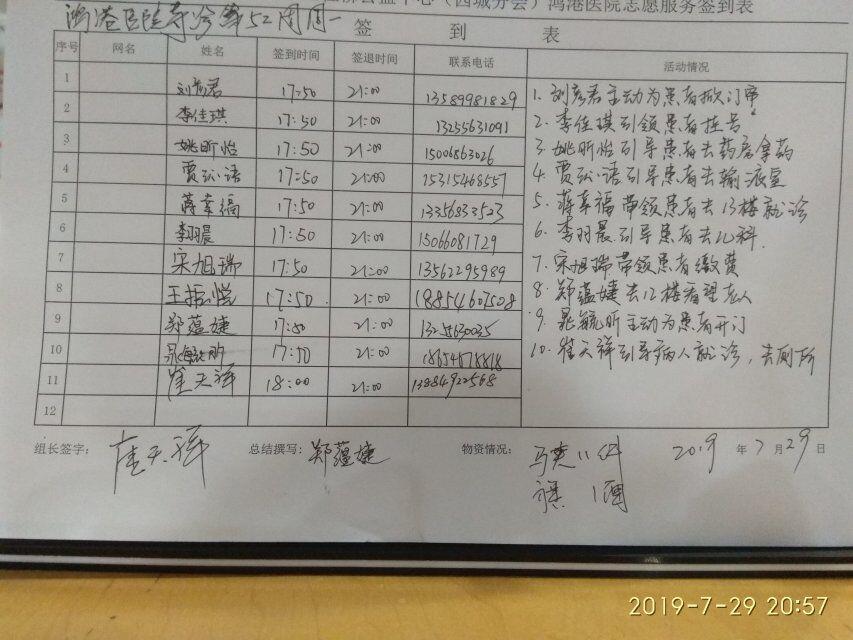 公益中心（西城分会）鸿港医院志愿服务签到表
鸿港医院 第52周周一
签 到 表
序号 网名 姓名 签到时间 签退时间 联系电话 活动情况
1 刘彦君 17:50 21:00 13589981829
2 李佳琪 17:50 21:00 13255631091
3 姚昕怡 17:50 21:00 15006863026
4 贾 语 17:50 21:00 15315468557
5 蒋幸福 17:50 21:00 13356833523
6 李羽晨 17:50 21:00 15066081729
7 宋旭瑞 17:50 21:00 13562295989
8 王振悦 17:50 21:00 18854607508
9 郑蕴婕 17:50 21:00 13255630035
10 晁毓昕 17:50 21:00
11 崔天祥 18:00 21:00 13884922568
12
1. 刘彦君主动为患者掀门帘
2. 李佳琪引领患者挂号
3. 姚昕怡引导患者去药房拿药
4. 贾 语引导患者去输液室
5. 蒋幸福带领患者去13楼就诊
6. 李羽晨引导患者去儿科.
7. 宋旭瑞带领患者缴费
8. 郑蕴婕去12楼看望老人
9. 晁毓昕主动为患者开门
10. 崔天祥引导病人就诊，去厕所
组长签字： 崔天祥 总结撰写： 郑蕴婕 物资情况： 马克11 2019 年 7 月 29 日
2019-7-29 20:57